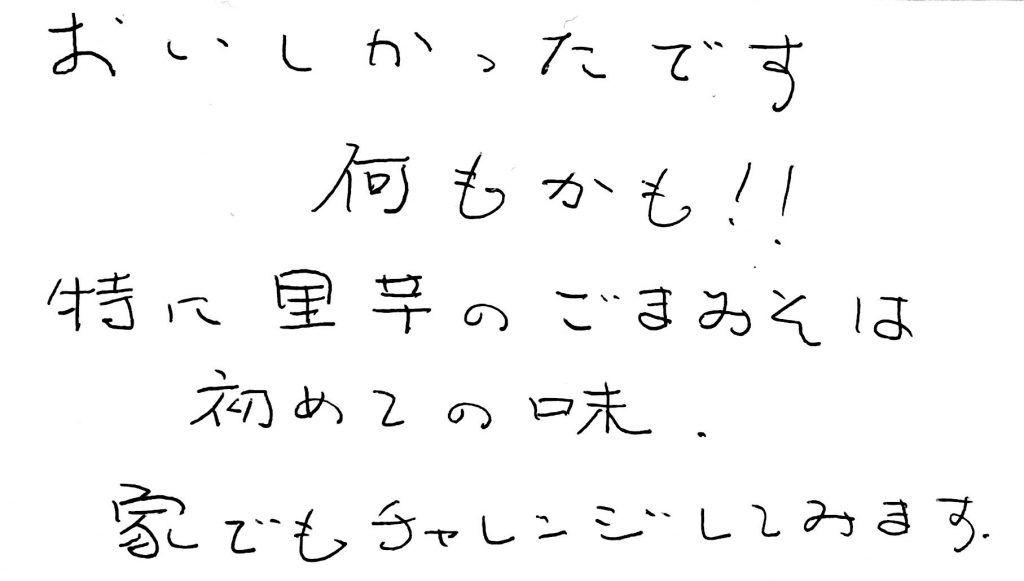 おいしかったです
何もかも!!
特に里芋のごまみそは
初めての味.
家でもチャレンジしてみます.